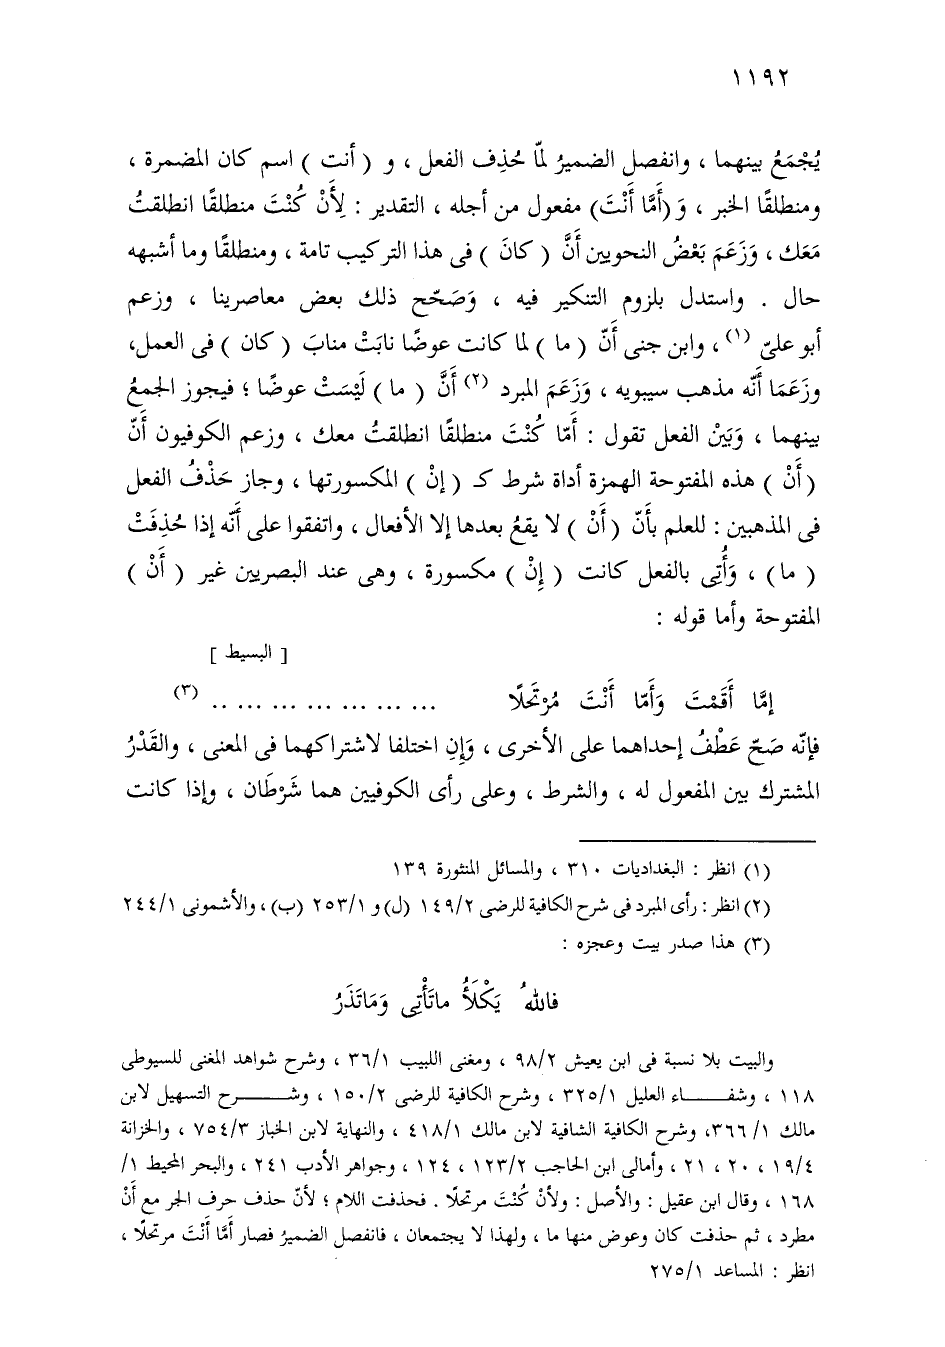 ١١٩٢
يُجْمَعُ بينهما ، وانفصل الضميرُ لمّا حُذِف الفعل ، و ( أنت ) اسم كان المضمرة ،
ومنطلقًا الخبر ، وَ (أَمَّا أَنْتَ) مفعول من أجله ، التقدير : لِأَنْ كُنْتَ منطلقًا انطلقتُ
مَعَك ، وَزَعَمَ بَعْضُ النحويين أَنَّ ( كانَ ) فى هذا التركيب تامة ، ومنطلقًا وما أشبهه
حال . واستدل بلزوم التنكير فيه ، وَصَحّح ذلك بعض معاصرينا ، وزعم
أبو علىّ (١) ، وابن جنى أَنّ ( ما ) لما كانت عوضًا نابَتْ منابَ ( كان ) فى العمل،
وزَعَمَا أَنَّه مذهب سيبويه ، وَزَعَمَ المبرد (٢) أَنَّ ( ما ) لَيْسَتْ عوضًا ؛ فيجوز الجمعُ
بينهما ، وَبَيْنَ الفعل تقول : أَمّا كُنْتَ منطلقًا انطلقتُ معك ، وزعم الكوفيون أَنّ
( أَنْ ) هذه المفتوحة الهمزة أداة شرط كـ ( إنْ ) المكسورتها ، وجاز حَذْفُ الفعل
فى المذهبين : للعلم بأَنّ ( أَنْ ) لا يقعُ بعدها إلا الأفعال ، واتفقوا على أَنّه إذا حُذِفَتْ
( ما ) ، وَأُتِى بالفعل كانت ( إِنْ ) مكسورة ، وهى عند البصريين غير ( أَنْ )
المفتوحة وأما قوله :
[ البسيط ]
إمَّا أَقَمْتَ وَأَمّا أَنْتَ مُرْتَحَلًا ... ... ... ... ... ... .. (٣)
فإنّه صَحّ عَطْفُ إحداهما على الأخرى ، وَإِنِ اختلفا لاشتراكهما فى المعنى ، والقَدْرُ
المشترك بين المفعول له ، والشرط ، وعلى رأى الكوفيين هما شَرْطَان ، وإذا كانت
(١) انظر : البغداديات ٣١٠ ، والمسائل المنثورة ١٣٩
(٢) انظر : رأى المبرد فى شرح الكافية للرضى ١٤٩/٢ (ل) و ٢٥٣/١ (ب) ، والأشمونى ٢٤٤/١
(٣) هذا صدر بيت وعجزه :
فاللهُ يَكْلَأُ ماتَأْتِى وَمَاتَذَرُ
والبيت بلا نسبة فى ابن يعيش ٩٨/٢ ، ومغنى اللبيب ٣٦/١ ، وشرح شواهد المغنى للسيوطى
١١٨ ، وشفـــاء العليل ٣٢٥/١ ، وشرح الكافية للرضى ١٥٠/٢ ، وشـــرح التسهيل لابن
مالك ٣٦٦/١، وشرح الكافية الشافية لابن مالك ٤١٨/١ ، والنهاية لابن الخباز ٧٥٤/٣ ، والخزانة
١٩/٤ ، ٢٠ ، ٢١ ، وأمالى ابن الحاجب ١٢٣/٢ ، ١٢٤ ، وجواهر الأدب ٢٤١ ، والبحر المحيط ١/
١٦٨ ، وقال ابن عقيل : والأصل : ولأنْ كُنْتَ مرتحلًا . فحذفت اللام ؛ لأنّ حذف حرف الجر مع أَنْ
مطرد ، ثم حذفت كان وعوض منها ما ، ولهذا لا يجتمعان ، فانفصل الضميرُ فصار أَمَّا أَنْتَ مرتحلًا ،
انظر : المساعد ٢٧٥/١